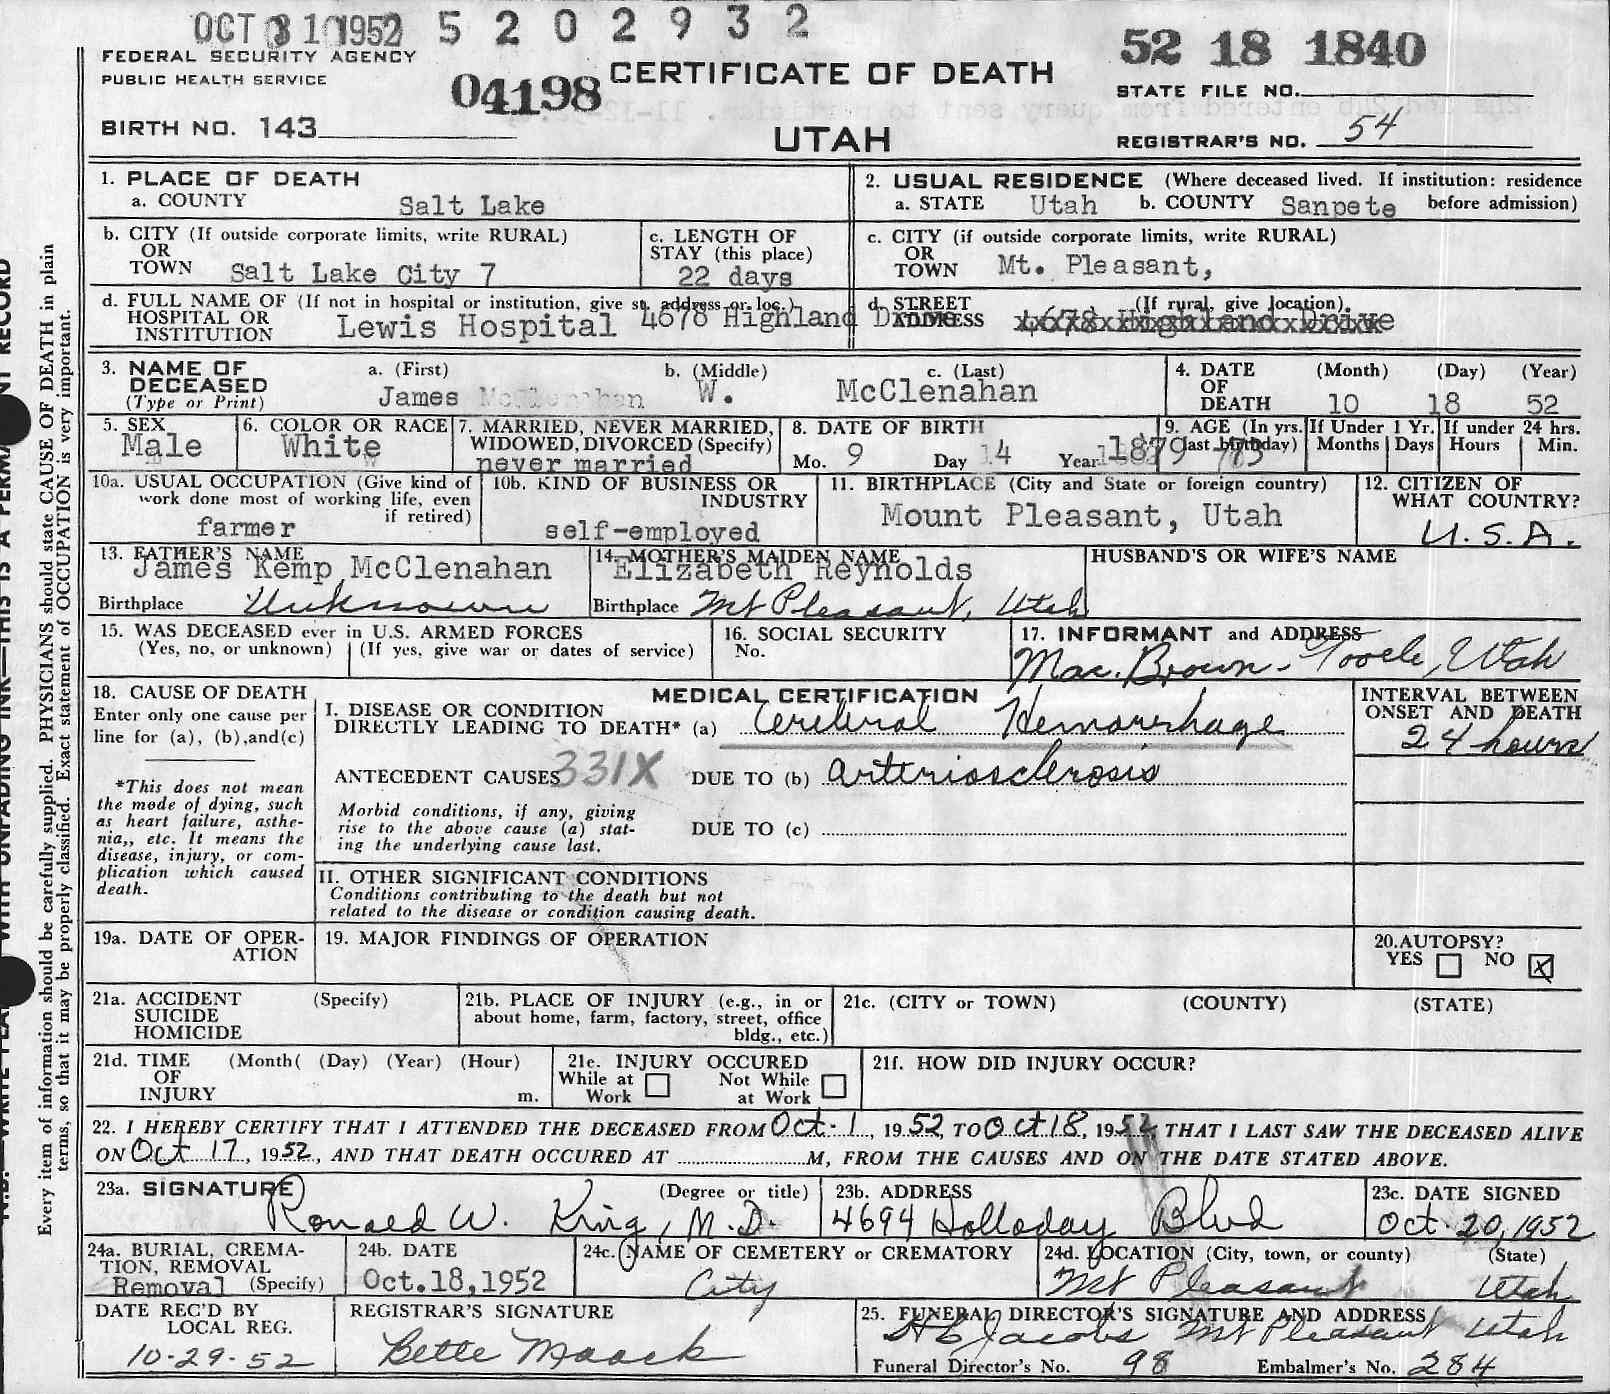 OCT 31 1952 5 2 0 2 9 3 2
52 18 1840
FEDERAL SECURITY AGENCY
PUBLIC HEALTH SERVICE
04198
CERTIFICATE OF DEATH
STATE FILE NO.
BIRTH NO. 143
UTAH
REGISTRAR'S NO. 54
1. PLACE OF DEATH
a. COUNTY Salt Lake
2. USUAL RESIDENCE (Where deceased lived. If institution: residence
a. STATE Utah b. COUNTY Sanpete before admission)
b. CITY (If outside corporate limits, write RURAL)
OR
TOWN Salt Lake City 7
c. LENGTH OF
STAY (this place)
22 days
c. CITY (if outside corporate limits, write RURAL)
OR
TOWN Mt. Pleasant,
d. FULL NAME OF (If not in hospital or institution, give st. address or loc.)
HOSPITAL OR
INSTITUTION Lewis Hospital 4678 Highland Drive
d. STREET (If rural, give location)
ADDRESS 4678 Highland Drive
3. NAME OF
DECEASED
(Type or Print)
a. (First) b. (Middle) c. (Last)
James W. McClenahan
4. DATE
OF
DEATH
(Month) (Day) (Year)
10 18 52
5. SEX
Male
6. COLOR OR RACE
White
7. MARRIED, NEVER MARRIED,
WIDOWED, DIVORCED (Specify)
never married
8. DATE OF BIRTH
Mo. 9 Day 14 Year 1879
9. AGE (In yrs.
last birthday)
73
If Under 1 Yr.
Months Days
If under 24 hrs.
Hours Min.
10a. USUAL OCCUPATION (Give kind of
work done most of working life, even
if retired)
farmer
10b. KIND OF BUSINESS OR
INDUSTRY
self-employed
11. BIRTHPLACE (City and State or foreign country)
Mount Pleasant, Utah
12. CITIZEN OF
WHAT COUNTRY?
U.S.A.
13. FATHER'S NAME
James Kemp McClenahan
Birthplace Unknown
14. MOTHER'S MAIDEN NAME
Elizabeth Reynolds
Birthplace Mt Pleasant, Utah
HUSBAND'S OR WIFE'S NAME
15. WAS DECEASED ever in U.S. ARMED FORCES
(Yes, no, or unknown) (If yes, give war or dates of service)
16. SOCIAL SECURITY
No.
17. INFORMANT and ADDRESS
Mac. Brown - Tooele, Utah
18. CAUSE OF DEATH
Enter only one cause per
line for (a), (b), and (c)
*This does not mean
the mode of dying, such
as heart failure, asthe-
nia,, etc. It means the
disease, injury, or com-
plication which caused
death.
MEDICAL CERTIFICATION
I. DISEASE OR CONDITION
DIRECTLY LEADING TO DEATH* (a) Cerebral Hemorrhage
ANTECEDENT CAUSES 331X DUE TO (b) Arteriosclerosis
Morbid conditions, if any, giving
rise to the above cause (a) stat-
ing the underlying cause last.
DUE TO (c)
INTERVAL BETWEEN
ONSET AND DEATH
24 hours
II. OTHER SIGNIFICANT CONDITIONS
Conditions contributing to the death but not
related to the disease or condition causing death.
19a. DATE OF OPER-
ATION
19. MAJOR FINDINGS OF OPERATION
20. AUTOPSY?
YES NO X
21a. ACCIDENT (Specify)
SUICIDE
HOMICIDE
21b. PLACE OF INJURY (e.g., in or
about home, farm, factory, street, office
bldg., etc.)
21c. (CITY or TOWN) (COUNTY) (STATE)
21d. TIME (Month( (Day) (Year) (Hour)
OF
INJURY m.
21e. INJURY OCCURED
While at Not While
Work at Work
21f. HOW DID INJURY OCCUR?
22. I HEREBY CERTIFY THAT I ATTENDED THE DECEASED FROM Oct. 1, 1952, TO Oct 18, 1952, THAT I LAST SAW THE DECEASED ALIVE
ON Oct 17, 1952, AND THAT DEATH OCCURED AT M, FROM THE CAUSES AND ON THE DATE STATED ABOVE.
23a. SIGNATURE (Degree or title)
Ronald W. King, M.D.
23b. ADDRESS
4694 Holladay Blvd
23c. DATE SIGNED
Oct. 20, 1952
24a. BURIAL, CREMA-
TION, REMOVAL
Removal (Specify)
24b. DATE
Oct.18,1952
24c. NAME OF CEMETERY or CREMATORY
City
24d. LOCATION (City, town, or county) (State)
Mt Pleasant Utah
DATE REC'D BY
LOCAL REG.
10-29-52
REGISTRAR'S SIGNATURE
Bette Maack
25. FUNERAL DIRECTOR'S SIGNATURE AND ADDRESS
H C Jacobs Mt Pleasant Utah
Funeral Director's No. 98 Embalmer's No. 284
Every item of information should be carefully supplied. PHYSICIANS should state CAUSE OF DEATH in plain
terms, so that it may be properly classified. Exact statement of OCCUPATION is very important.